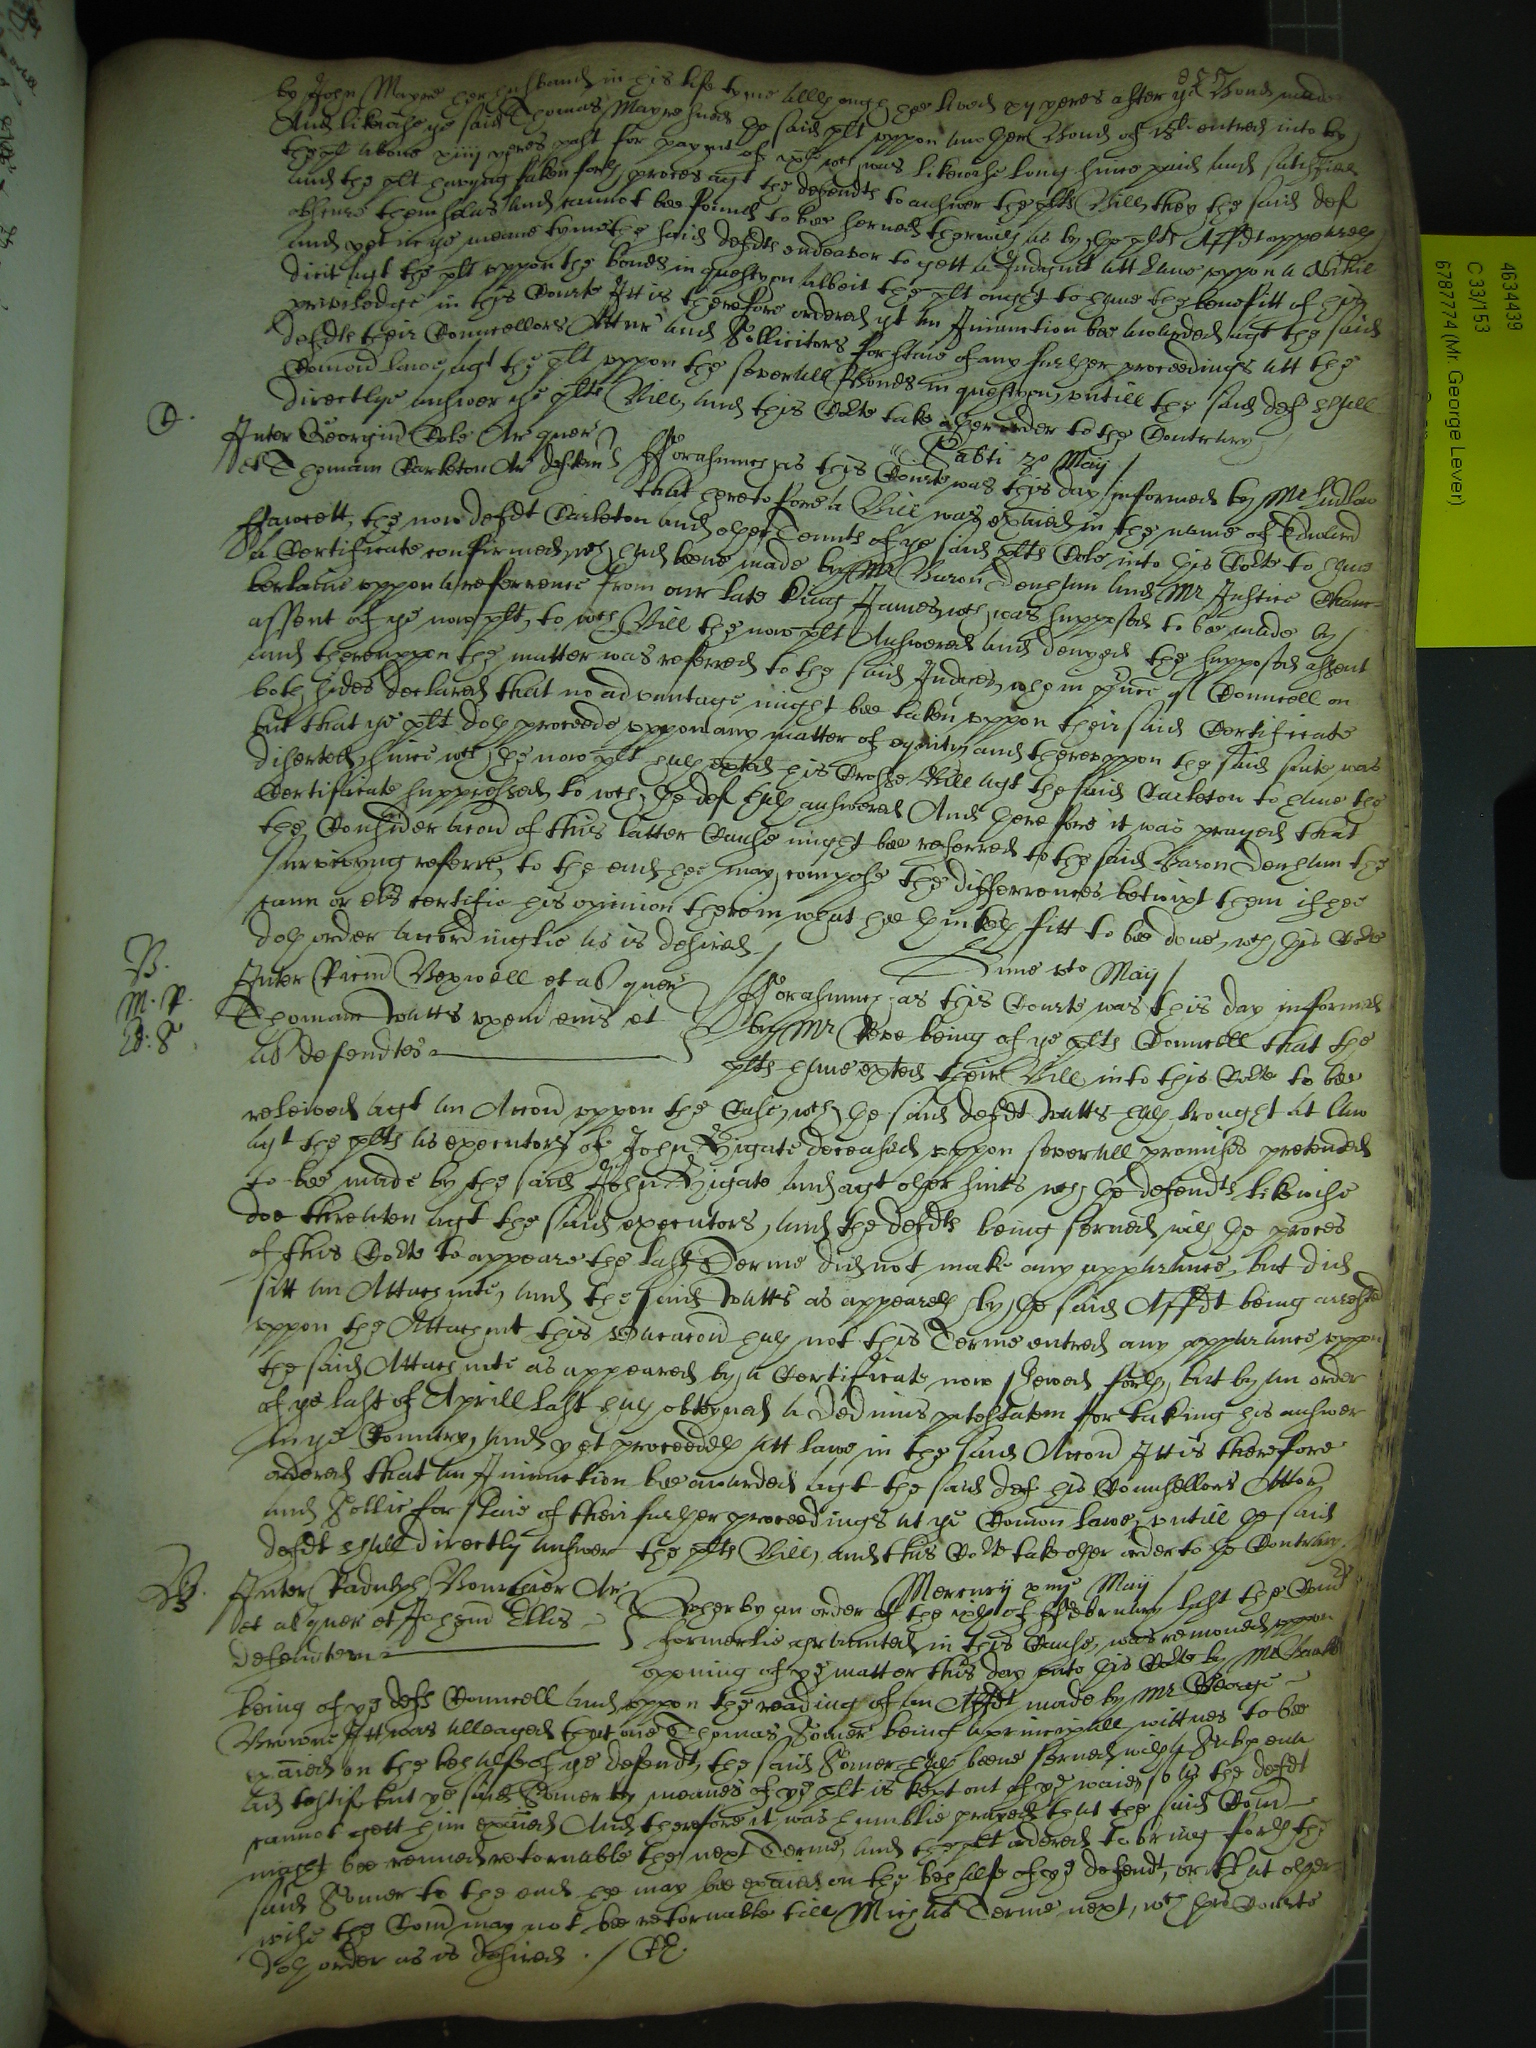 by John Mayne her husband in his life tyme although hee lived xy yeres after ye Bond made
And likewise ye said Thomas Mayne sued the said plt uppon another Bond of entred into by
the plt above xiiij yeres past for paymt of wch was likewise long since paid and satisfied
and the plt having taken forth proces agt the defendts to answer the plts Bill, they the said def
obscure themselves and cannot bee found to bee served therwith as by the plts Affdt appeareth
and yet in ye meane tyme the said defdts endeavor to gett a Judgmt att Lawe uppon a Nihil
dicit agt the plt uppon the bonds in question albeit the plt ought to have the benefitt of his
priviledge in this Courte Itt is therefore ordered yt an Iniunction bee awarded agt the said
defdts their Councellors Attnes and Sollicitors for staie of any further proceedings att the
Comon lawe agt the plt uppon the severall Bonds in question, untill the said defts shall
directlye answer the plts Bill, and this Corte take other order to the Contrary
C.
Inter Georgiu Cole Ar quer
et Thomam Carleton Ar deften
Sabti 30 May
Forasmuch as this Courte was this day informed by Mr Ludlow
that heretofore a Bill was exhited in the name of Edward
Fawcett, the now defdt Carleton and other Tennts of ye said plts Cole into this Corte to have
a Certificate confirmed, wch had beene made by Mr Baron Denham and Mr Justice Cham-
berlaine uppon a referrence from our late King James, wch was supposed to bee made by
assent of ye now plt, to wch Bill the now plt Answered and denyed the supposed assent
and thereuppon the matter was referred to the said Judges, who in pnce of Councell on
both sides declared that no advantage might bee taken uppon their said Certificate
but that ye plt doth proceede uppon any matter of equity, and thereuppon the said suite was
diserted, since wch the now plt hath exhted his Crosse Bill agt the said Carleton to have the
Certificate suppressed, to wch the def hath answered And therefore it was prayed that
the Consideracon of this latter Cause might bee referred to the said Baron Denham the
surviving referre, to the end hee may compose the differrences betwixt them if hee
cann or els certifie his opinion therein what hee thinketh fitt to bee done, wch this Corte
doth order accordinglie as is desired
B.
M. P.
Ed: S
Inter Ricm Bexwell et al quer
Thomam Watts uxem eius et
al defendtes
Lune 1to May
Forasmuch as this Courte was this day informed
by Mr Vere being of ye plts Councell that the
plts have exhted their Bill into this Corte to bee
releived agt an Accon uppon the Case, wch the said defdt Watts hath brought at law
agt the plts as executors of John Higate deceased uppon severall promises pretended
to bee made by the said John Higate and agt other suits wch the defendts likewise
doe threaten agt the said executors, and the defdts being served with the proces
of this Corte to appeare the last Terme did not make any apparance, but did
sitt an Attachmte, and the said Watts as appeareth by the said Affdt being arrested
uppon the Attachmt this Vacacon hath not this Terme entred any apparance uppon
the said Attachmte as appeared by a Certificate now shewed forth, but by an order
of ye last of Aprill last hath obteyned a Dedimus potestatem for taking his answer
in ye Country, and yet proceedeth att lawe in the said Accon Itt is therefore
ordered that an Iniunction bee awarded agt the said def his Counsellors Attor
and Sollic for staie of their further proceedings at ye Comon lawe, untill the said
defdt shall directly answer the plts Bill, and this Corte take other order to the Contrary.
B.
Inter Radulph Bourchier Ar
et al quer et Johem Ellis
defendtem
Mercurij xmo May
Wher by an order of the xith of February last the Comd
formerlie graunted in this Cause, was renewed, uppon
opening of ye matter this day unto this Corte by Mr Banks
being of ye defts Councell and uppon the reading of an Affdt made by Mr George
Browne Itt was alleaged that one Thomas Somer being a principall wittnes to bee
exaied on the behalfe of ye defendt, the said Somer hath beene served with a Subpena
ad testif but ye said Somer by meanes of ye plt is kept out of ye waie, so as the defdt
cannot gett him exaied And therefore it was humblie prayed that the said Comd
might bee renued retornable the next Terme, and the plt ordered to bring forth the
said Somer to the end he may bee exaied on the behalfe of ye defendt, or that other
wise the Comd may not bee retornable till Michas Terme next, wch this Courte
doth order as is desired. /
4634439
C 33/153
6787774 (Mr. George Lever)